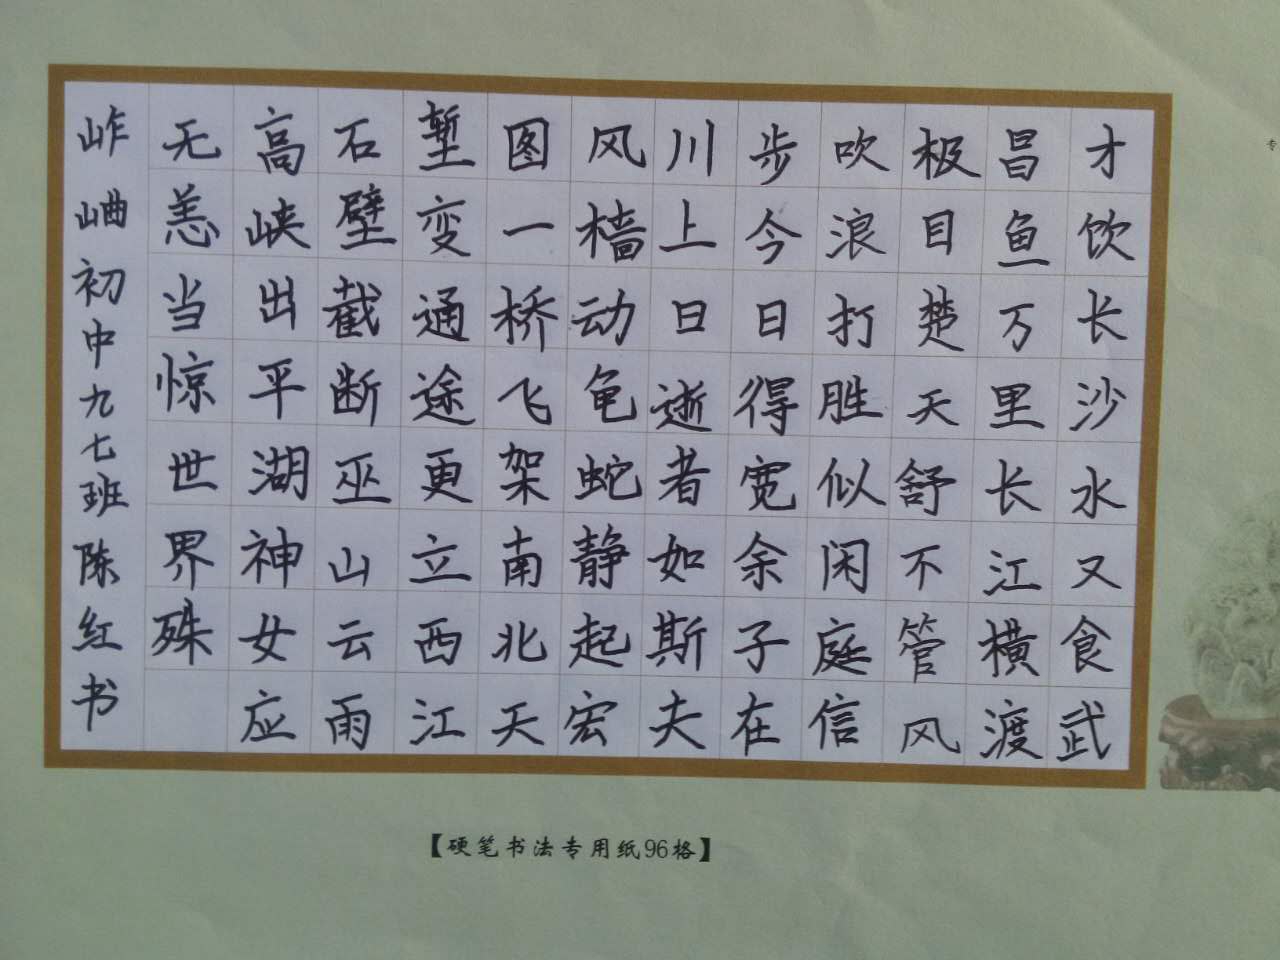 才饮长沙水又食武
昌鱼万里长江横渡
极目楚天舒不管风
吹浪打胜似闲庭信
步今日得宽余子在
川上日逝者如斯夫
风樯动龟蛇静起宏
图一桥飞架南北天
堑变通途更立西江
石壁截断巫山云雨
高峡出平湖神女应
无恙当惊世界殊
岞初中九七班陈红书
【硬笔书法专用纸96格】
专